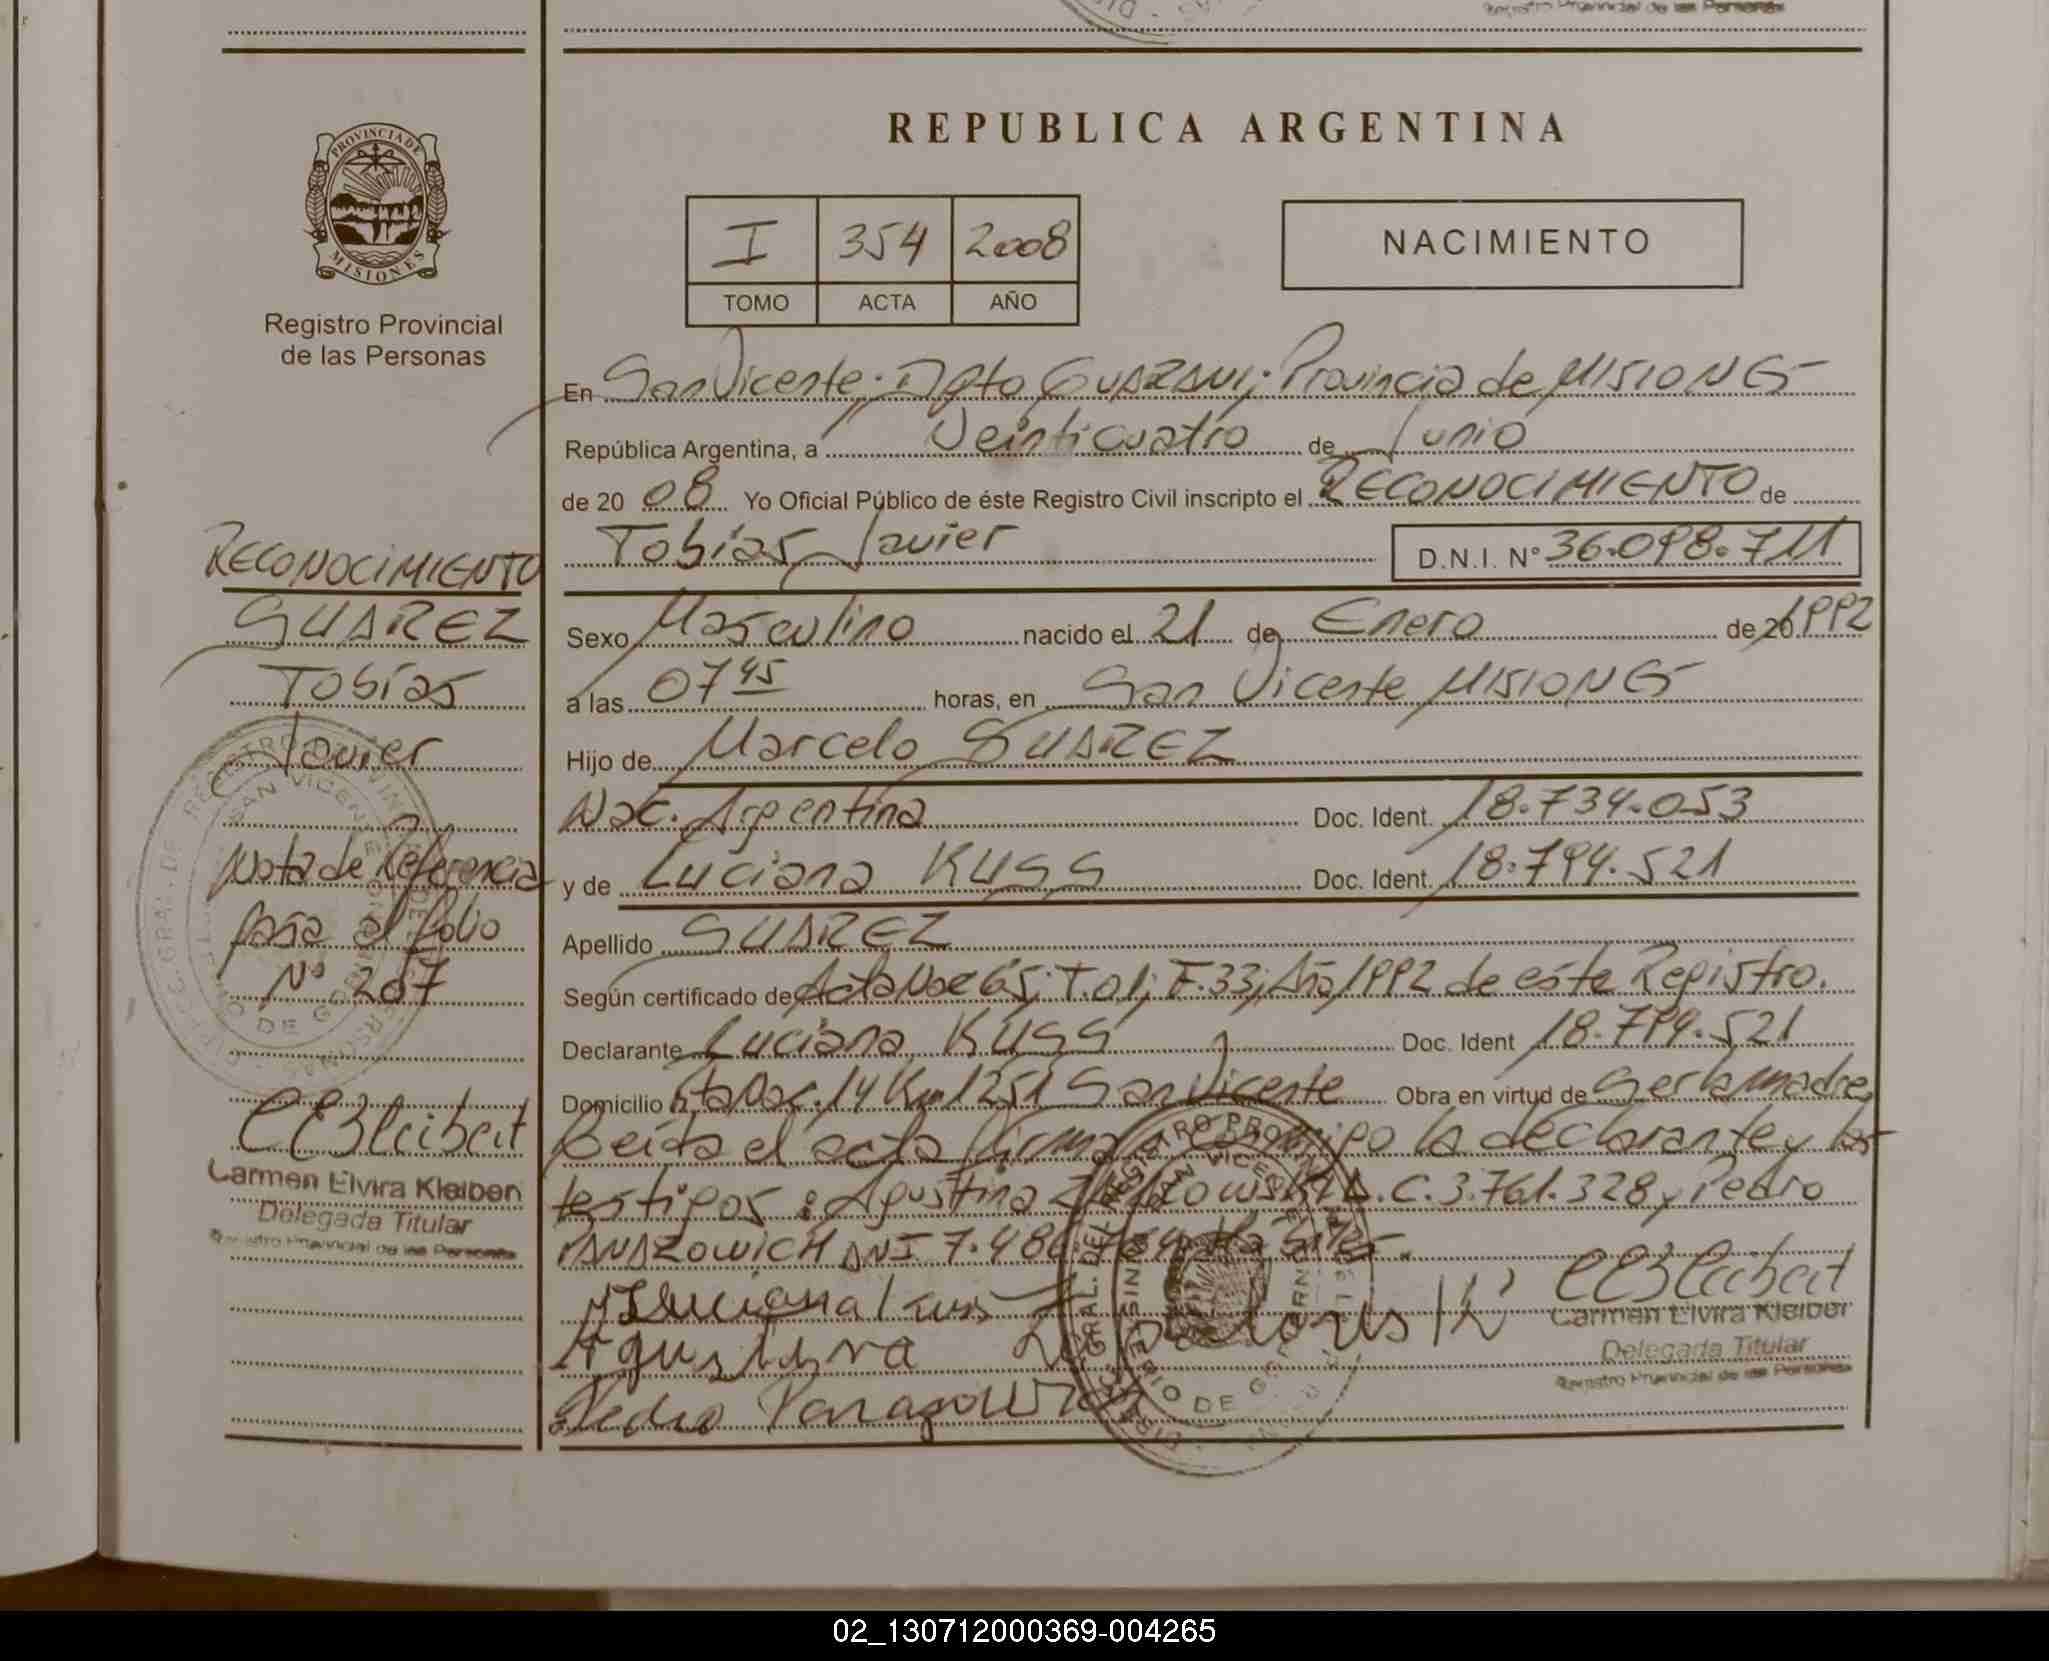 Registro Provincial de las Personas
REPUBLICA ARGENTINA
PROVINCIA DE
MISIONES
Registro Provincial
de las Personas
I 354 2008
TOMO ACTA AÑO
NACIMIENTO
En San Vicente; Dpto GUARANI; Provincia de MISIONES
República Argentina, a Veinticuatro de Junio
de 20 08 Yo Oficial Público de éste Registro Civil inscripto el RECONOCIMIENTO de
Tobías Javier D.N.I. Nº 36.098.711
Sexo Masculino nacido el 21 de Enero de 20 1992
a las 07 45 horas, en San Vicente MISIONES
Hijo de Marcelo SUAREZ
Nac. Argentina Doc. Ident. 18.734.053
y de Luciana KUSS Doc. Ident. 18.794.521
Apellido SUAREZ
Según certificado de Acta Nº 65; T. 01; F. 33; Año 1992 de este Registro.
Declarante Luciana KUSS Doc. Ident 18.794.521
Domicilio Km 1251 San Vicente Obra en virtud de ser la madre
Leída el acta firma conmigo la declarante y los
testigos: Agustina L.C. 3.761.328 y Pedro
PANAZOWICH DNI 7.48
Luciana Kuss
Agustina
Pedro
CEKleiber
Carmen Elvira Kleiber
Delegada Titular
Registro Provincial de las Personas
RECONOCIMIENTO
SUAREZ
Tobías
Javier
Nota de Referencia
pasa al folio
Nº 207
CEKleiber
Carmen Elvira Kleiber
Delegada Titular
Registro Provincial de las Personas
02_130712000369-004265